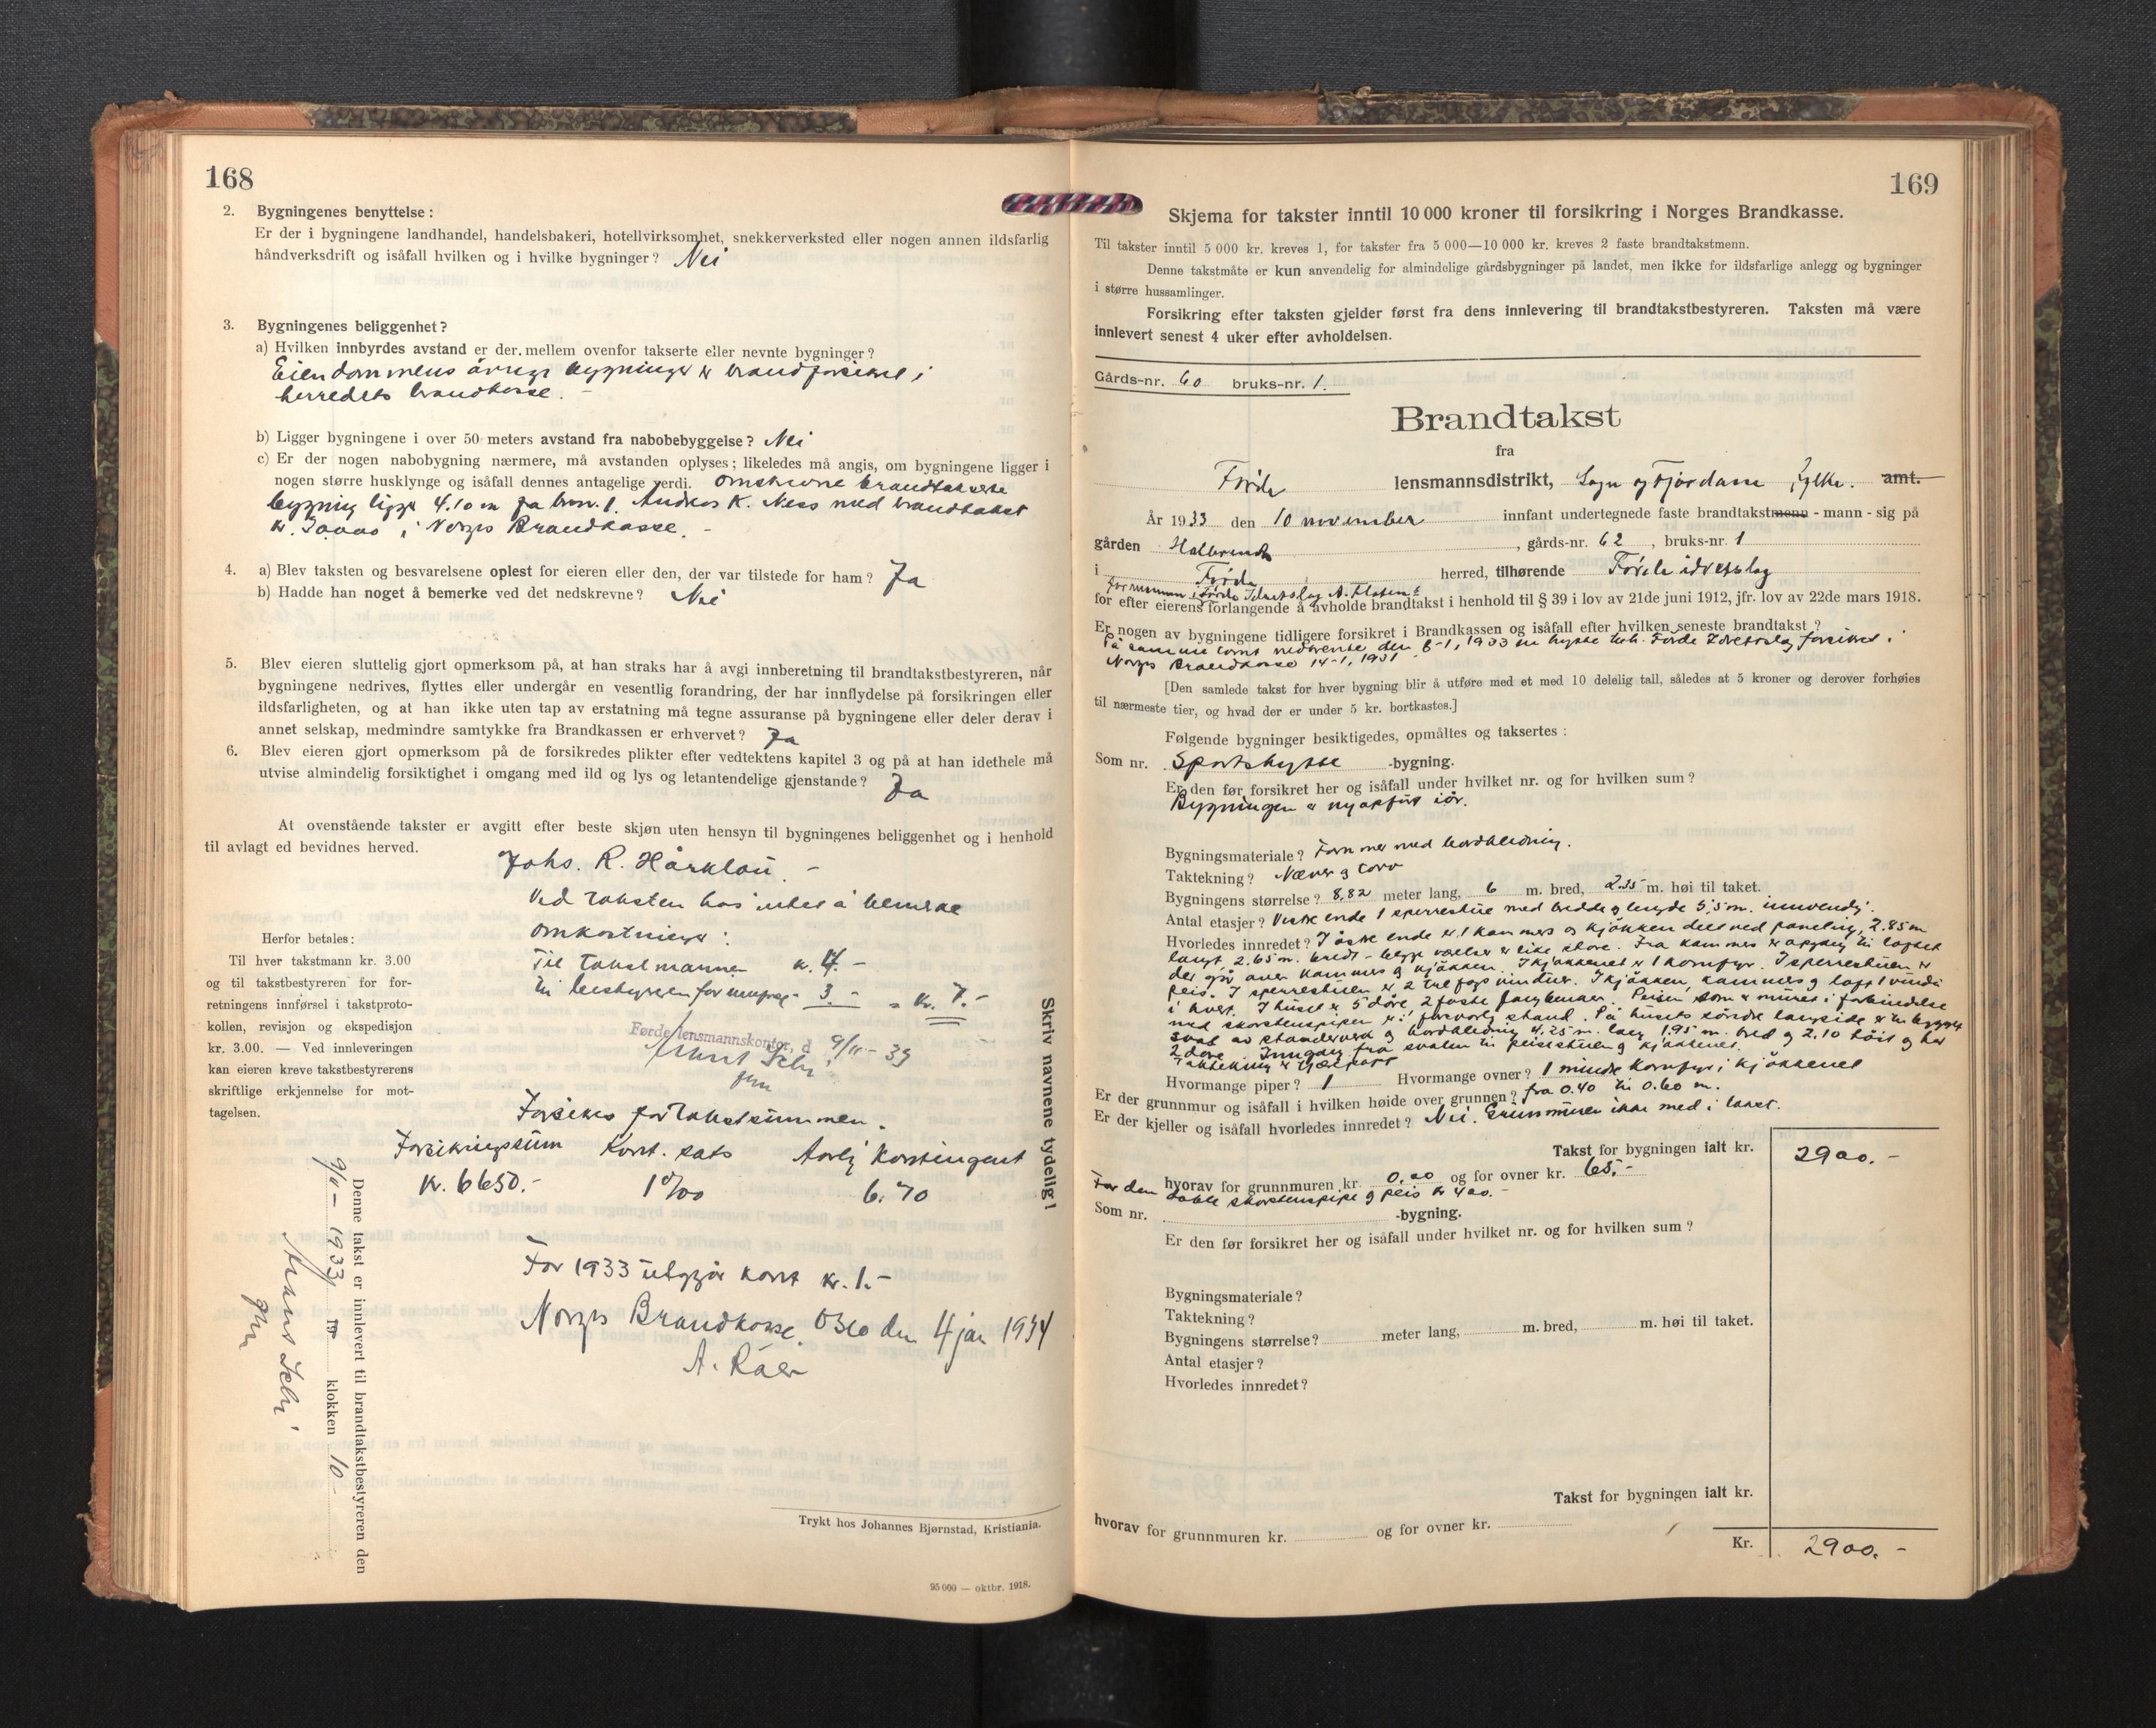 168
2. Bygningenes benyttelse:
Er der i bygningene landhandel, handelsbakeri, hotellvirksomhet, snekkerverksted eller nogen annen ildsfarlig
håndverksdrift og isåfall hvilken og i hvilke bygninger? Nei
3. Bygningenes beliggenhet?
a) Hvilken innbyrdes avstand er der mellem ovenfor takserte eller nevnte bygninger?
Eiendommens øvrige bygninger er brandforsikret i
herredets brandkasse. -
b) Ligger bygningene i over 50 meters avstand fra nabobebyggelse? Nei
c) Er der nogen nabobygning nærmere, må avstanden oplyses; likeledes må angis, om bygningene ligger i
nogen større husklynge og isåfall dennes antagelige verdi. Omskrevne brandtakserte
bygning ligger 4.10 m fra brnr. 1 Andreas K. Ness med brandtakst
i Norges Brandkasse. -
4. a) Blev taksten og besvarelsene oplest for eieren eller den, der var tilstede for ham? Ja
b) Hadde han noget å bemerke ved det nedskrevne? Nei
5. Blev eieren sluttelig gjort opmerksom på, at han straks har å avgi innberetning til brandtakstbestyreren, når
bygningene nedrives, flyttes eller undergår en vesentlig forandring, der har innflydelse på forsikringen eller
ildsfarligheten, og at han ikke uten tap av erstatning må tegne assuranse på bygningene eller deler derav i
annet selskap, medmindre samtykke fra Brandkassen er erhvervet? Ja
6. Blev eieren gjort opmerksom på de forsikredes plikter efter vedtektens kapitel 3 og på at han idethele må
utvise almindelig forsiktighet i omgang med ild og lys og letantendelige gjenstande? Ja
At ovenstående takster er avgitt efter beste skjøn uten hensyn til bygningenes beliggenhet og i henhold
til avlagt ed bevidnes herved.
Johs. R. Hårklau. -
Ved taksten has intet å bemerke
Omkostninger:
Til takstmannen kr. 4.-
til bestyreren 3.- = kr. 7.-
Førde lensmannskontor, d. 9/11-33
Herfor betales:
Til hver takstmann kr. 3.00
og til takstbestyreren for for-
retningens innførsel i takstproto-
kollen, revisjon og ekspedisjon
kr. 3.00. — Ved innleveringen
kan eieren kreve takstbestyrerens
skriftlige erkjennelse for mot-
tagelsen.
Forsikres for takstsummen.
Forsikringssum Kont. sats Aarlig Kontingent
Kr. 6650.- 1 ‰ 6.70
For 1933 utgjør kont kr. 1.-
Norges Brandkasse. Oslo den 4 jan 1934
Skriv navnene tydelig!
Denne takst er innlevert til brandtakstbestyreren den
9/11-1933 19 klokken 10
Trykt hos Johannes Bjørnstad, Kristiania.
95000 — oktbr. 1918.
169
Skjema for takster inntil 10 000 kroner til forsikring i Norges Brandkasse.
Til takster inntil 5 000 kr. kreves 1, for takster fra 5 000—10 000 kr. kreves 2 faste brandtakstmenn.
Denne takstmåte er kun anvendelig for almindelige gårdsbygninger på landet, men ikke for ildsfarlige anlegg og bygninger
i større hussamlinger.
Forsikring efter taksten gjelder først fra dens innlevering til brandtakstbestyreren. Taksten må være
innlevert senest 4 uker efter avholdelsen.
Gårds-nr. 60 bruks-nr. 1.
Brandtakst
fra
Førde lensmannsdistrikt, Sogn og Fjordane fylke. amt.
År 1933 den 10 november innfant undertegnede faste brandtakstmenn - mann - sig på
gården Halbrendt, gårds-nr. 62, bruks-nr. 1
i Førde herred, tilhørende Førde idrettslag
formannen i Førde Idrettslag A. Flaten
for efter eierens forlangende å avholde brandtakst i henhold til § 39 i lov av 21de juni 1912, jfr. lov av 22de mars 1918.
Er nogen av bygningene tidligere forsikret i Brandkassen og isåfall efter hvilken seneste brandtakst?
På samme tomt nedbrente den 8-1, 1933 en hytte tilh. Førde Idrettslag forsikret i
Norges Brandkasse 14-1, 1931
[Den samlede takst for hver bygning blir å utføre med et med 10 delelig tall, således at 5 kroner og derover forhøies
til nærmeste tier, og hvad der er under 5 kr. bortkastes.]
Følgende bygninger besiktigedes, opmåltes og taksertes:
Som nr. Sportshytte -bygning.
Er den før forsikret her og isåfall under hvilket nr. og for hvilken sum?
Bygningen er nyopført iår.
Bygningsmateriale? Tømmer med bordkledning.
Taktekning? Never og torv
Bygningens størrelse? 8,82 meter lang, 6 m. bred, 2.35 m. høi til taket.
Antal etasjer? Vestre ende 1 sperrestue med bredde og lengde 5,5 m. innvendig.
Hvorledes innredet? I østre ende er 1 kammers og kjøkken delt ved paneling, 2.85 m
langt 2.65 m. bredt - begge værelser er like store. Fra kammers er opgang til loftet
der går over kammers og kjøkken. I kjøkkenet er 1 komfyr. I sperrestuen er
peis. I sperrestuen er 2 trefags vinduer. I kjøkken, kammers og loft 1 vindu
i hvert. I huset er 5 døre, 2 faste Peisen som er muret i forbindelse
med skorstenspipen er i forsvarlig stand. På husets nordre langside er en bygget
sval av standerverk og bordkledning 4.25 m. lang 1.95 m. bred og 2.10 høit og har
2 døre. Inngang fra svalen til peisestuen og kjøkkenet.
Taktekning er tjærepapp
Hvormange piper? 1 Hvormange ovner? 1 mindre komfyr i kjøkkenet
Er der grunnmur og isåfall i hvilken høide over grunnen? fra 0.40 til 0.60 m.
Er der kjeller og isåfall hvorledes innredet? Nei. Grunnmuren ikke med i takst.
Takst for bygningen ialt kr. 2900.-
hvorav for grunnmuren kr. 0.00 og for ovner kr. 65.-
For den skorstenspipe og peis kr 400.-
Som nr. -bygning.
Er den før forsikret her og isåfall under hvilket nr. og for hvilken sum?
Bygningsmateriale?
Taktekning?
Bygningens størrelse? meter lang, m. bred, m. høi til taket.
Antal etasjer?
Hvorledes innredet?
Takst for bygningen ialt kr.
hvorav for grunnmuren kr. og for ovner kr.
Kr. 2900.-